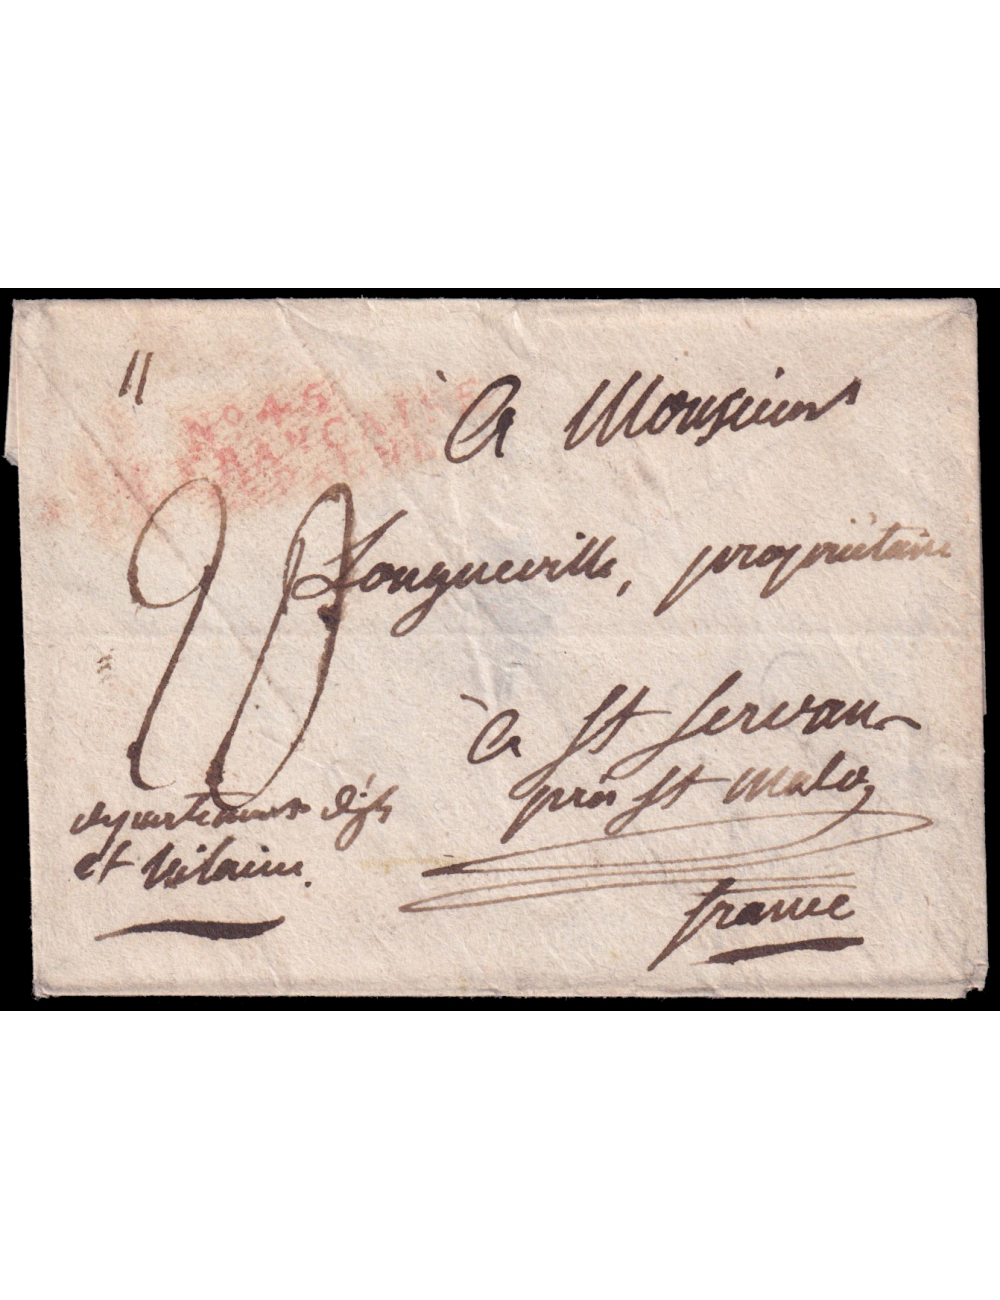 11
No. 45
FRANÇAISE
à Monsieur
20
Longueville, propriétaire
à St Servan
près St Malo,
departement d'isle
et Vilaine.
france